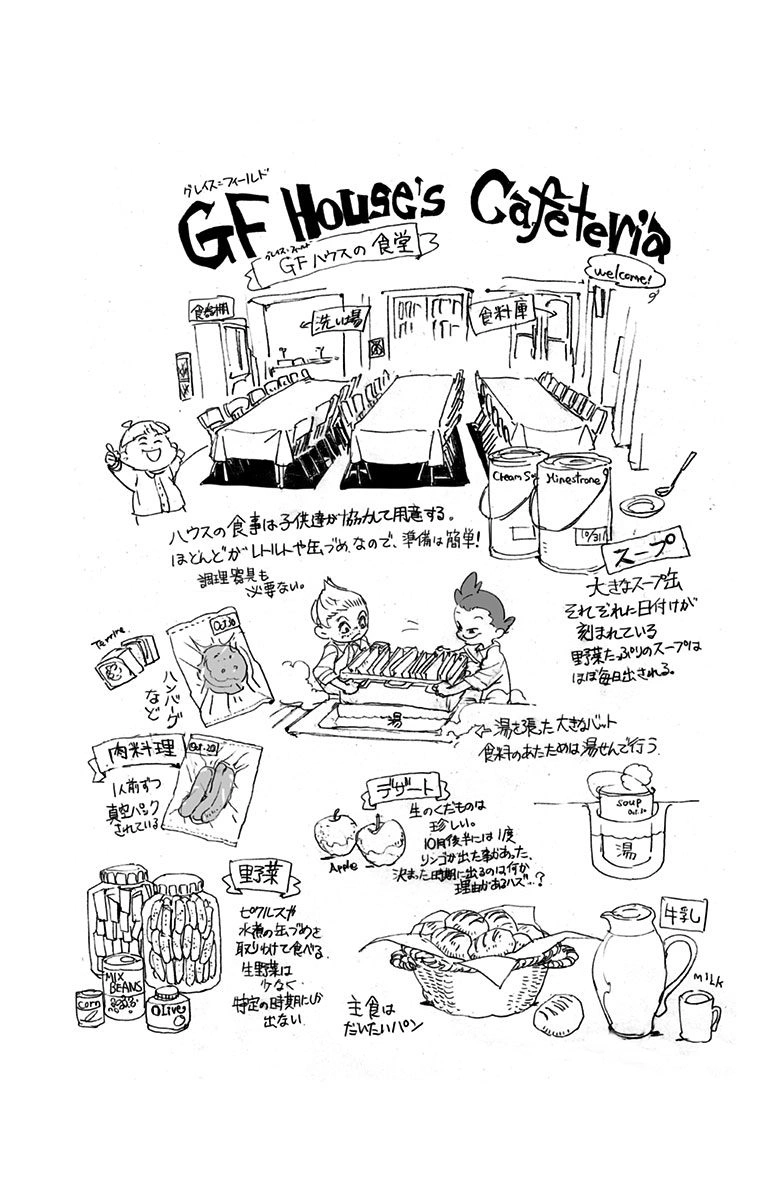 グレイス=フィールド
GF House's Cafeteria
グレイス=フィールド
GFハウスの食堂
welcome!
食器棚
洗い場
食料庫
Cream So
Minestrone
10/31
ハウスの食事は子供達が協力して用意する。
ほとんどがレトルトや缶づめなので、準備は簡単!
調理器具も
必要ない。
スープ
大きなスープ缶
それぞれに日付けが
刻まれている
野菜たっぷりのスープは
ほぼ毎日出される。
Terrine
Oct.30
ハンバーグ
など
湯
←湯を張った大きなバット
食料のあたためは湯せんで行う
肉料理
Oct.20
1人前ずつ
真空パック
されている
デザート
生のくだものは
珍しい。
10月後半には1度
リンゴが出た事があった、
決まった時期に出るのは何か
理由があるハズ…?
Apple
soup
Oct.30
湯
野菜
ピクルスや
水煮の缶づめを
取りわけて食べる
生野菜は
少なく
特定の時期にしか
出ない
MIX
BEANS
Corn
Olive
主食は
だいたいパン
牛乳
MILK